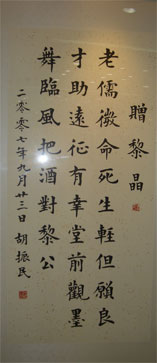 贈黎晶
老儒微命死生輕但願良
才助遠征有幸堂前觀墨
舞臨風把酒對黎公
二零零七年九月廿三日 胡振民